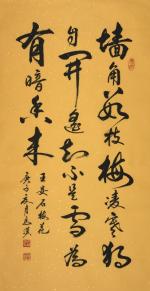 墙角数枝梅凌寒独
自開遥知不是雪為
有暗香来
王安石梅花
庚子月